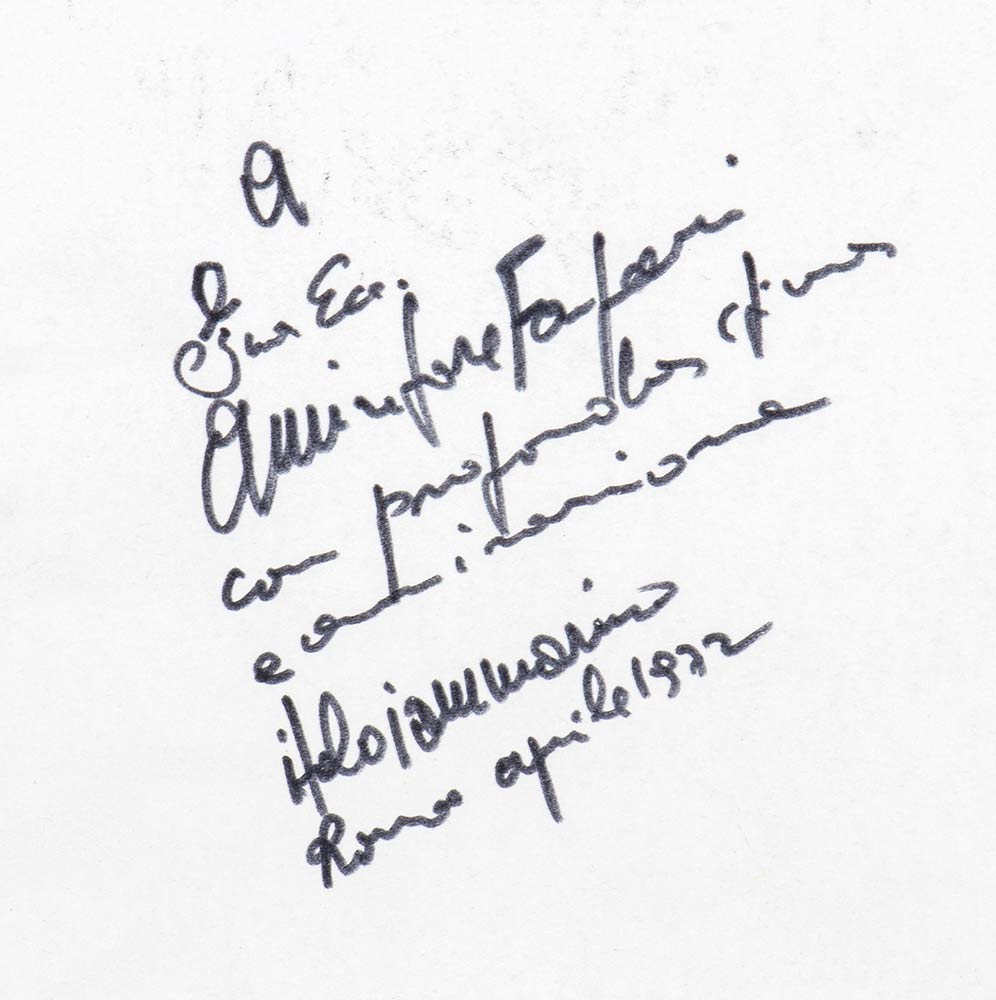 A
Sua Ecc.
Amintore Fanfani
con profonda stima
e ammirazione
italo iammarino
Roma aprile 1972